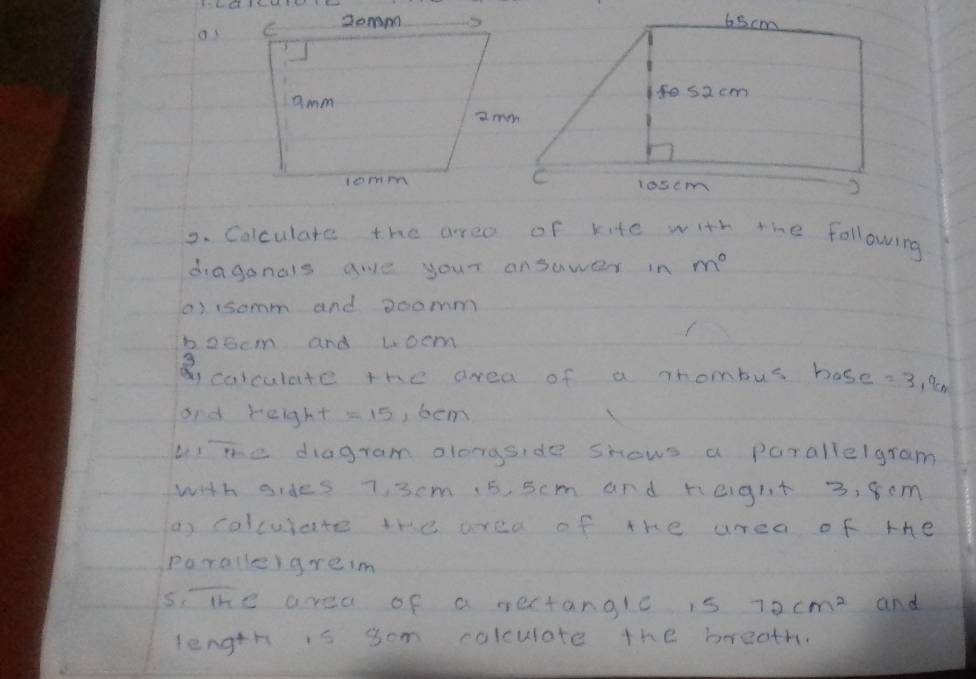 1. Calculate The
a)
20mm
65cm
9mm
52cm
2mm
10mm
105cm
2. Calculate the area of kite with the following
diagonals give your ansawer in m°
a) 150mm and 200mm
b 25cm and 40cm
3
calculate the area of a rhombus base = 3,9cm
and height = 15,6cm
4. The diagram alongside shows a parallelgram
with sides 7,3cm , 5,5cm and height 3,8cm
a) calculate the area of the urea of the
parallelgreim
5. The area of a rectangle is 72cm² and
length is 8cm calculate the breath.